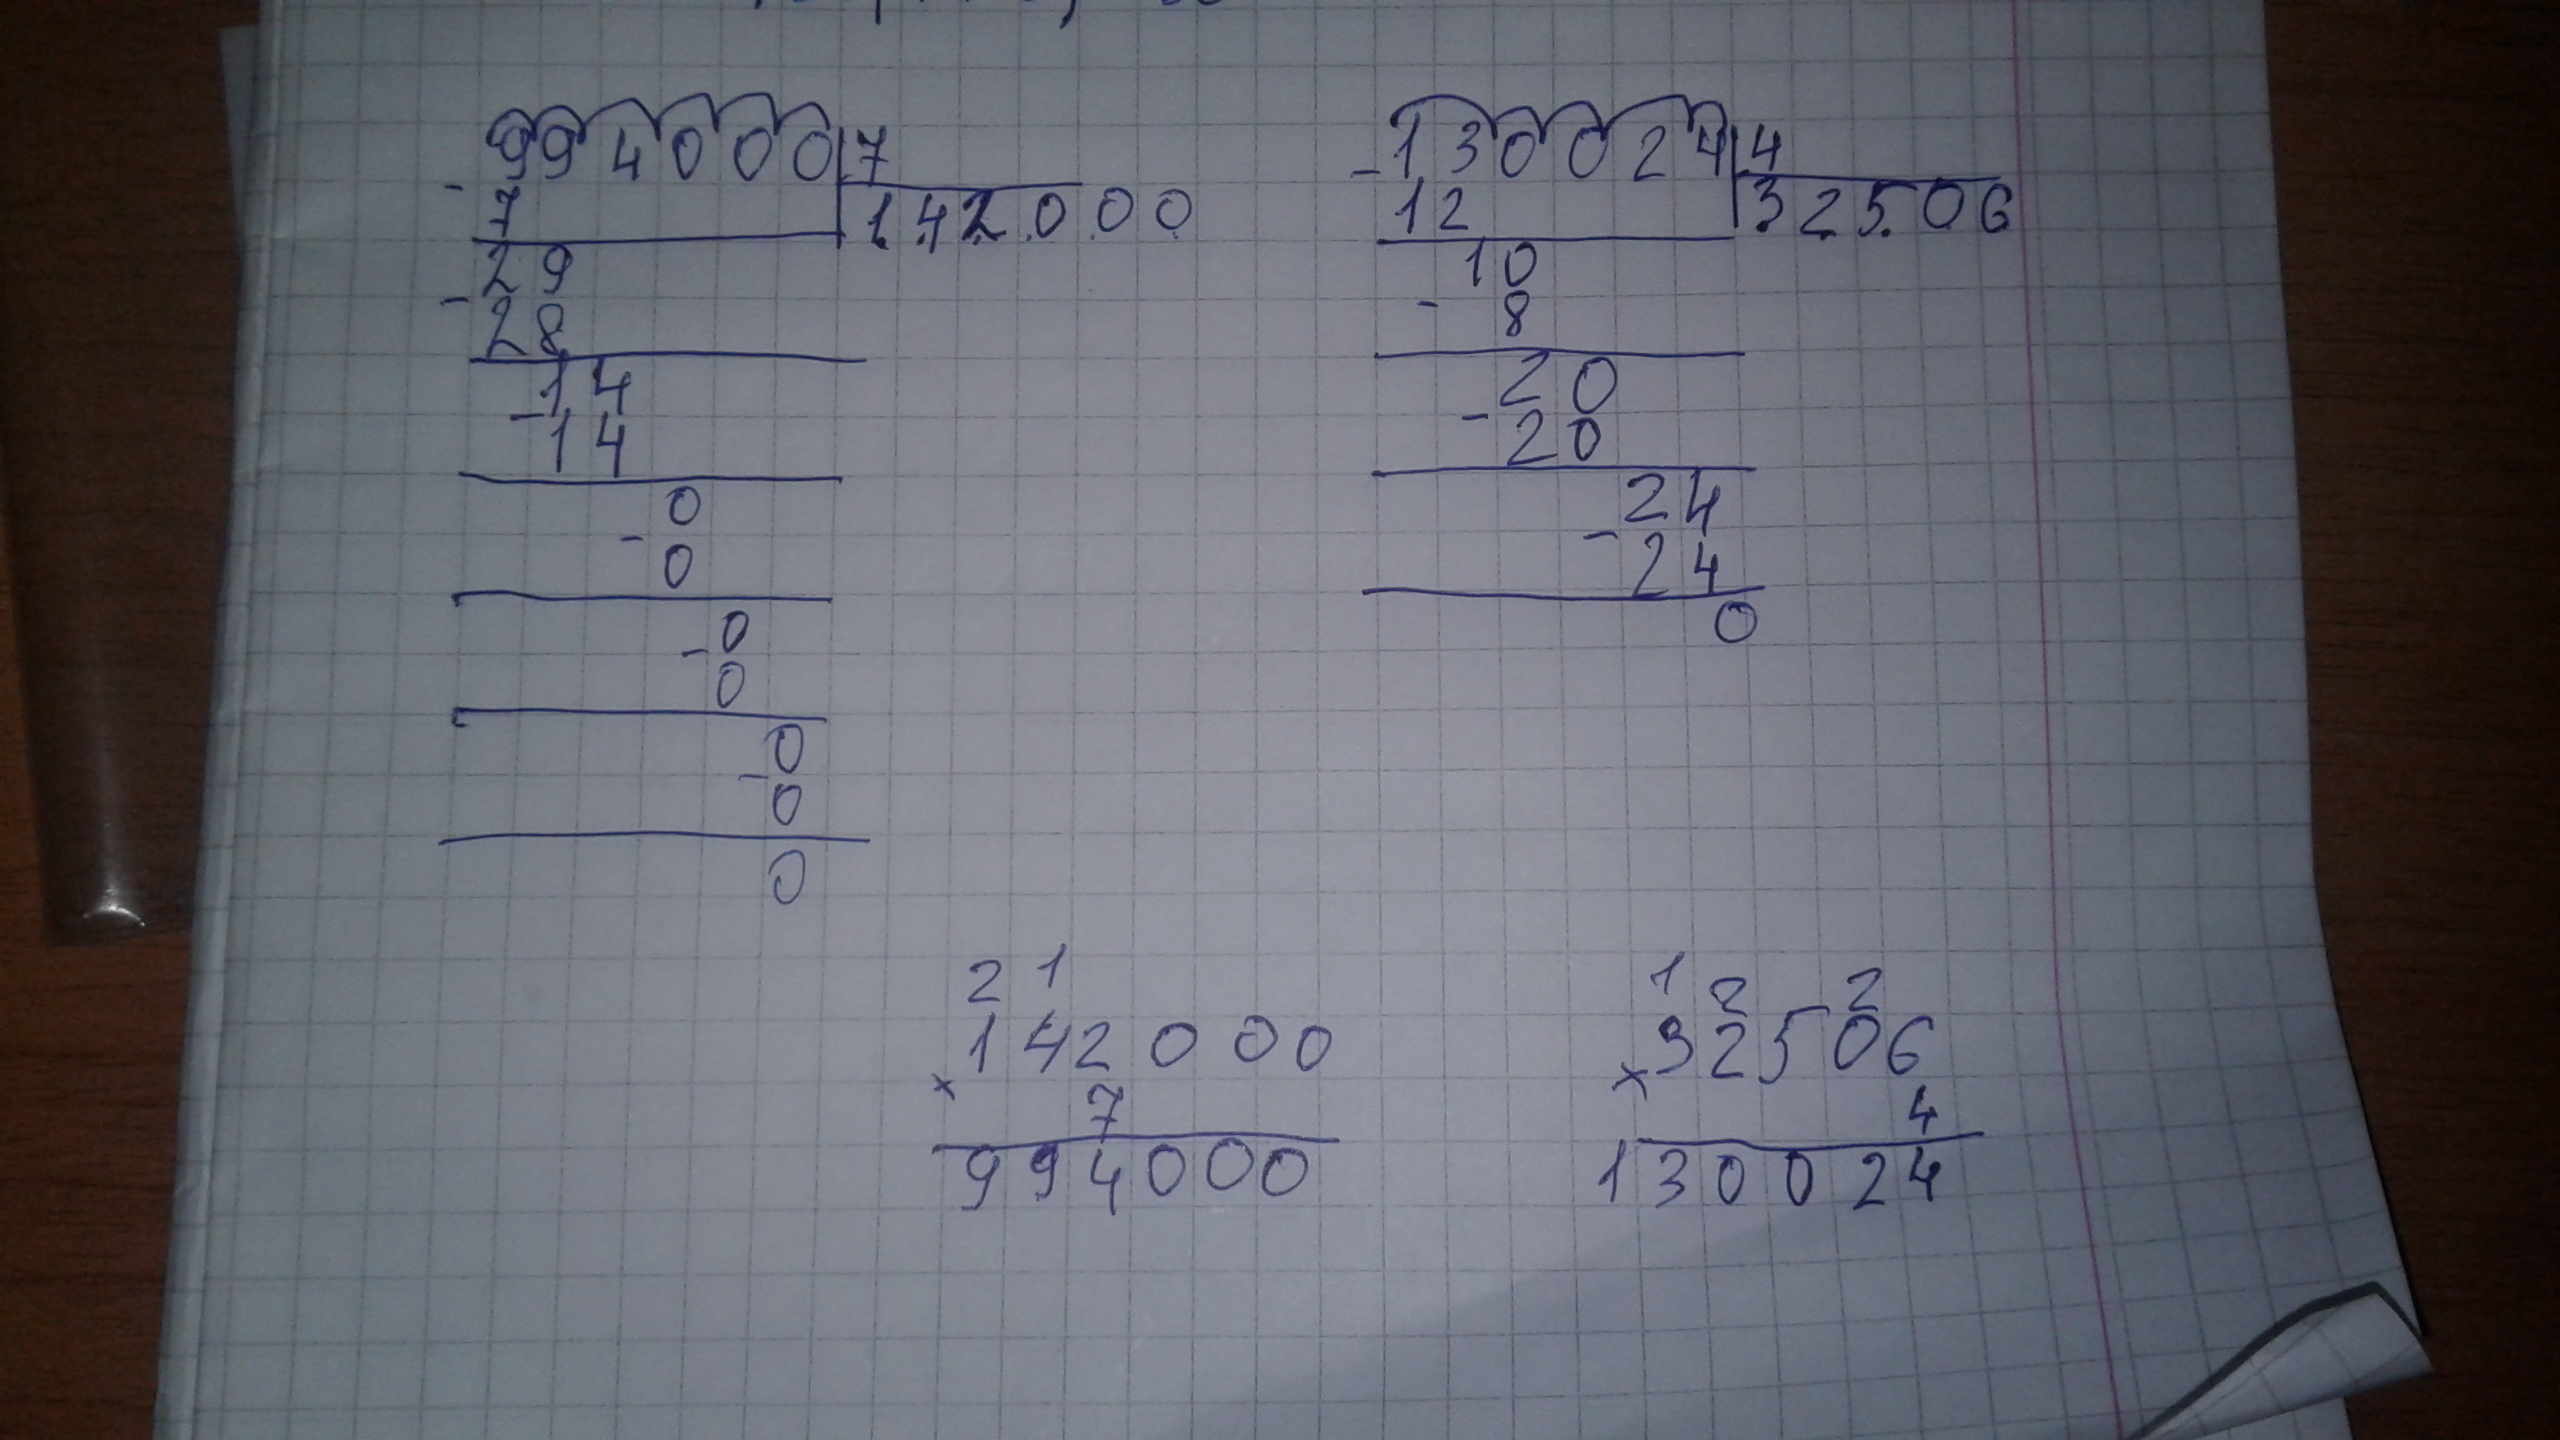 994000 7
- 7 142000
29
- 28
14
- 14
0
- 0
- 0
0
- 0
0
0
- 130024 4
12 32506
10
- 8
20
- 20
24
- 24
0
2 1
142000
× 7
994000
1 2 2
32506
× 4
130024